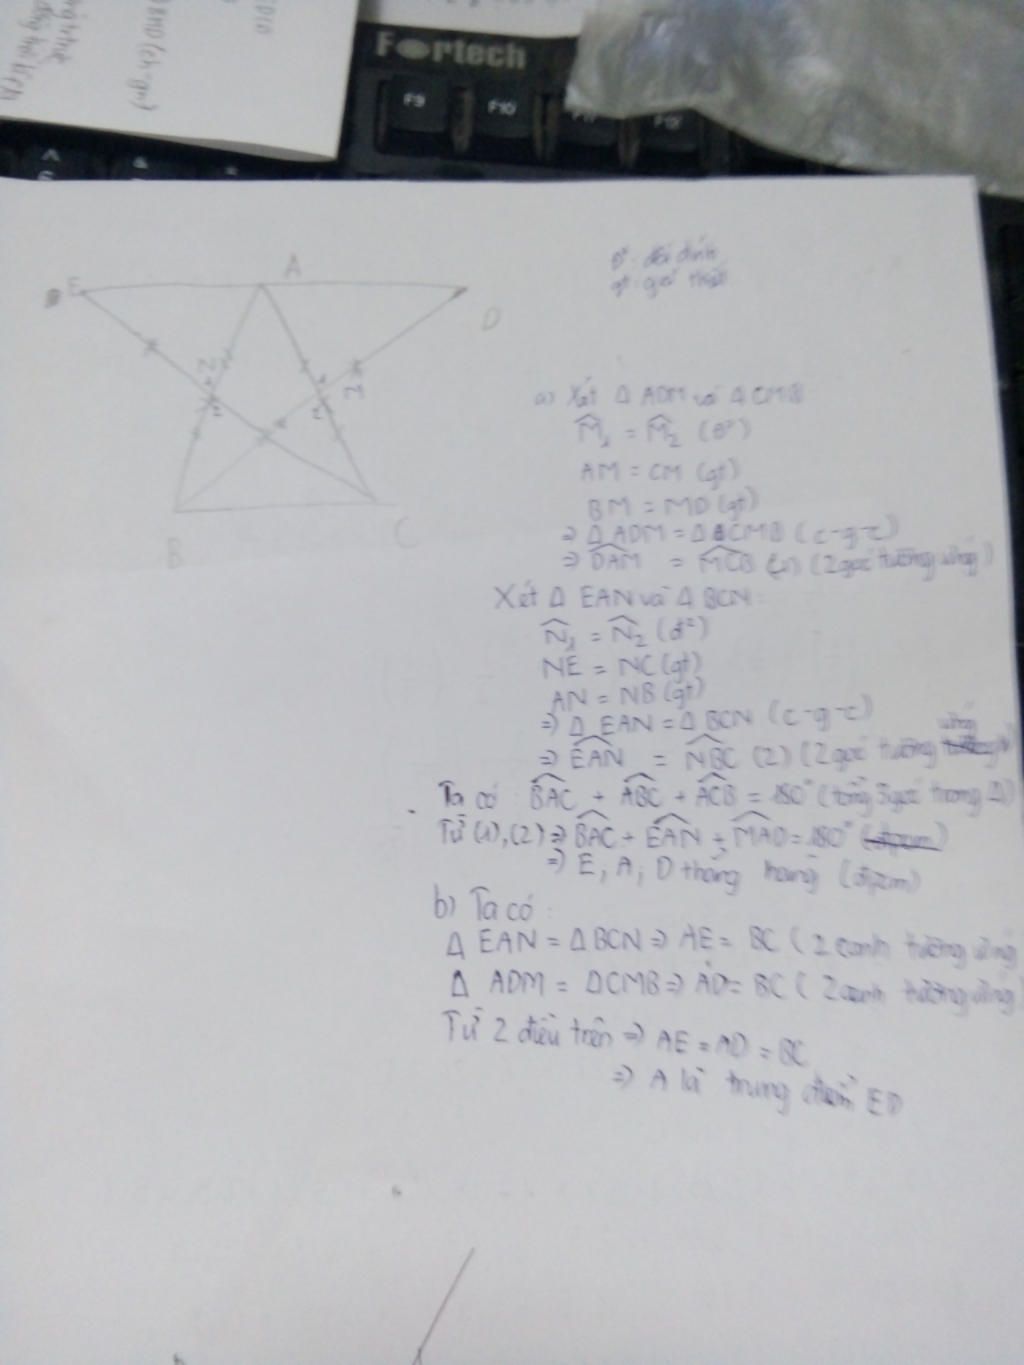 Fortech
F9
F10
E
A
D
B
C
đ²: đối đỉnh
gt: giả thiết
a) Xét Δ ADM và Δ CMB
M̂₁ = M̂₂ (đ²)
AM = CM (gt)
BM = MD (gt)
=> Δ ADM = Δ CMB (c-g-c)
=> DAM = MCB (1) (2 góc tương ứng)
Xét Δ EAN và Δ BCN:
N̂₁ = N̂₂ (đ²)
NE = NC (gt)
AN = NB (gt)
=> Δ EAN = Δ BCN (c-g-c)
=> EAN = NBC (2) (2 góc tương ứng
Ta có: BAC + ABC + ACB = 180° (tổng 3 góc trong Δ)
Từ (1), (2) => BAC + EAN + MAD = 180° (đpcm)
=> E, A, D thẳng hàng (đpcm)
b) Ta có:
Δ EAN = Δ BCN => AE = BC (2 cạnh tương ứng)
Δ ADM = Δ CMB => AD = BC (2 cạnh tương ứng)
Từ 2 điều trên => AE = AD = BC
=> A là trung điểm ED